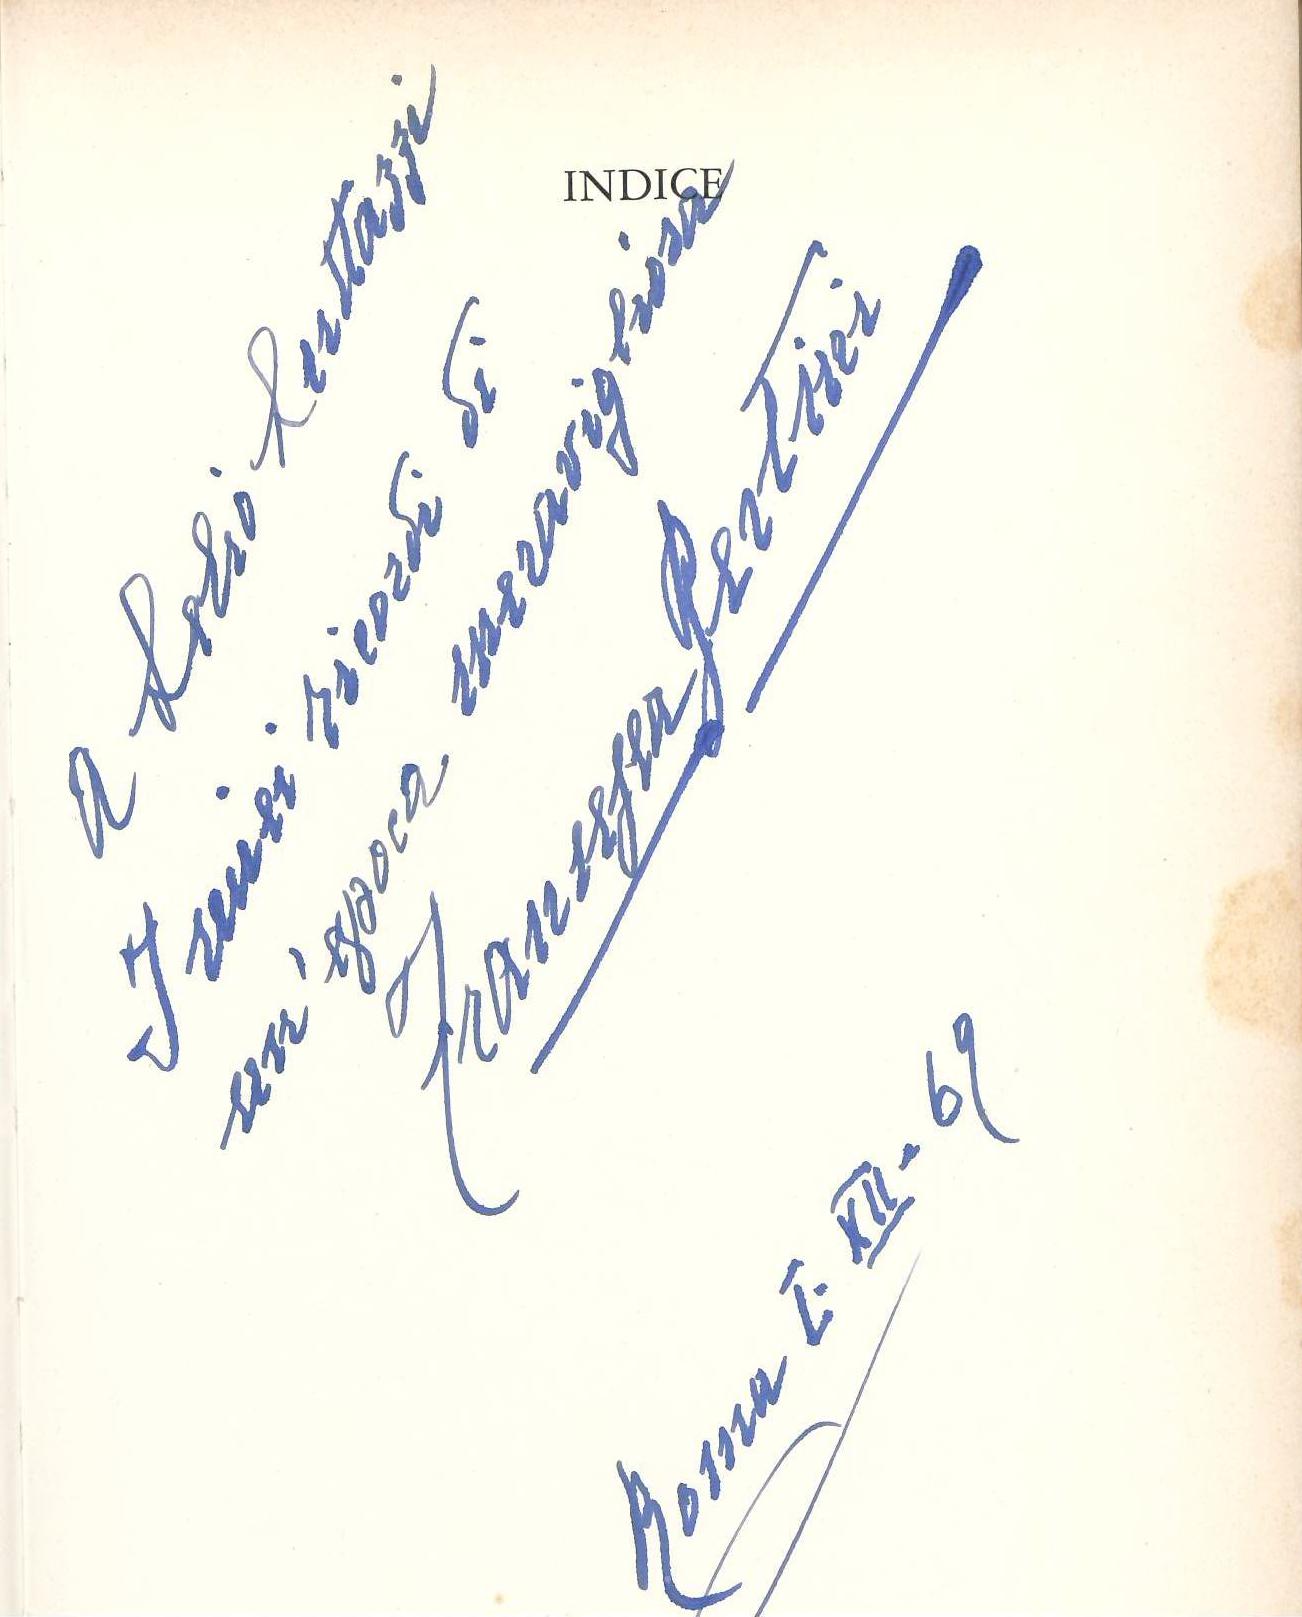 INDICE
A Lelio Luttazzi
I miei ricordi di
un'epoca meravigliosa
Francesca Bertini
Roma I. XII-69